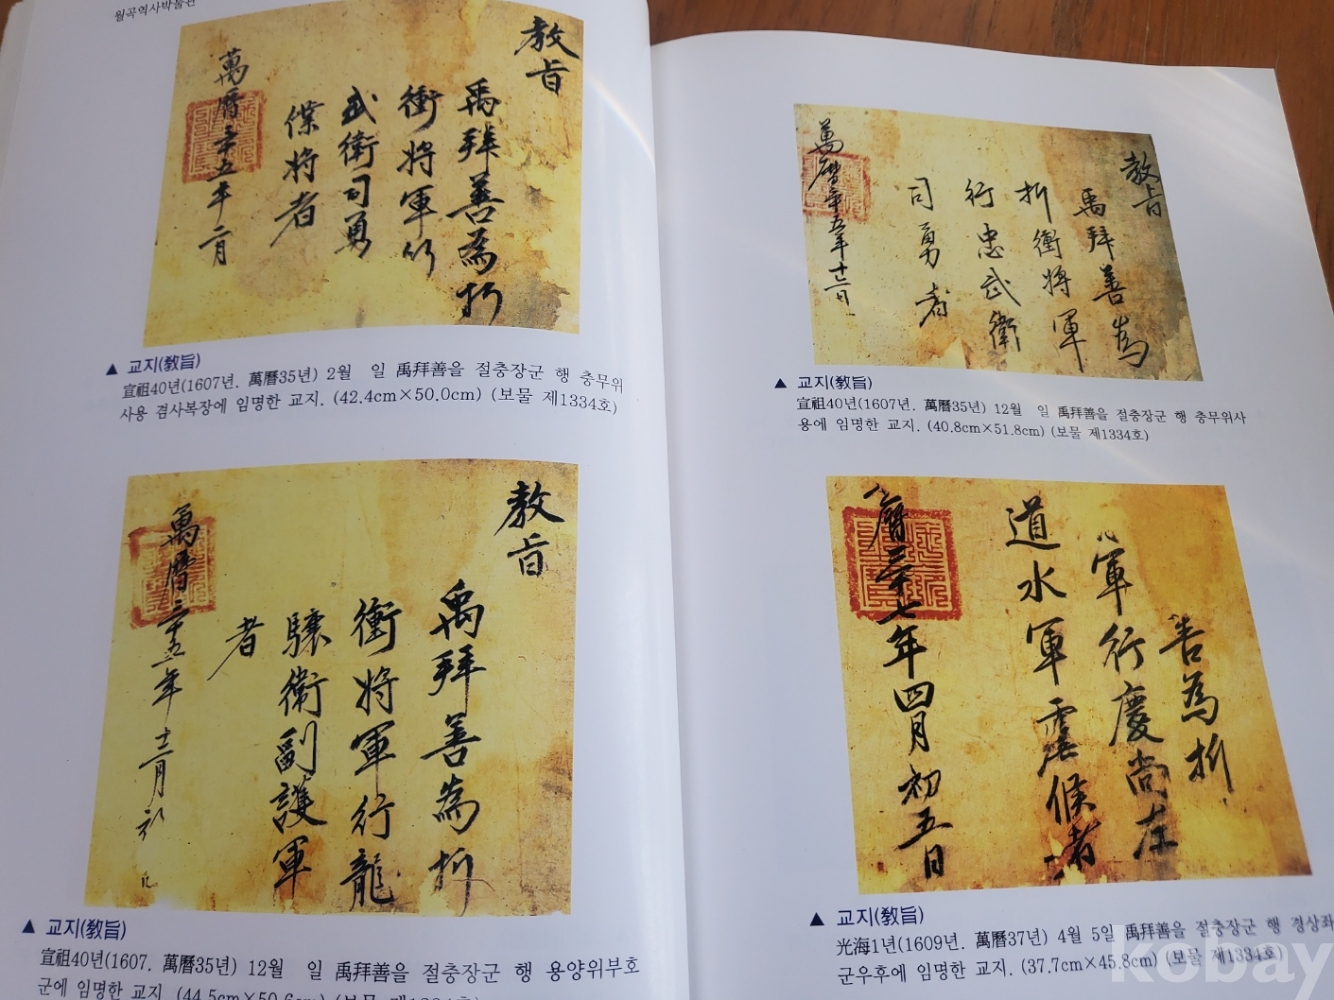 월곡역사박물관
教旨
禹拜善為折
衝將軍行
武衛司勇
僕將者
萬曆三十五年二月
▲ 교지(敎旨)
宣祖40년(1607년. 萬曆35년) 2월 일 禹拜善을 절충장군 행 충무위
사용 겸사복장에 임명한 교지. (42.4cm×50.0cm) (보물 제1334호)
教旨
禹拜善為折
衝將軍行龍
驤衛副護軍
者
萬曆三十五年十二月初
▲ 교지(敎旨)
宣祖40년(1607. 萬曆35년) 12월 일 禹拜善을 절충장군 행 용양위부호
군에 임명한 교지. (44.5cm×50.6cm) (보물 제1334호)
教旨
禹拜善為
折衝將軍
行忠武衛
司勇者
萬曆年五年十二月日
▲ 교지(敎旨)
宣祖40년(1607년. 萬曆35년) 12월 일 禹拜善을 절충장군 행 충무위사
용에 임명한 교지. (40.8cm×51.8cm) (보물 제1334호)
善為折
軍行慶尙左
道水軍虞候者
曆三十七年四月初五日
▲ 교지(敎旨)
光海1년(1609년. 萬曆37년) 4월 5일 禹拜善을 절충장군 행 경상좌
군우후에 임명한 교지. (37.7cm×45.8cm) (보물 제1334호)
kobay